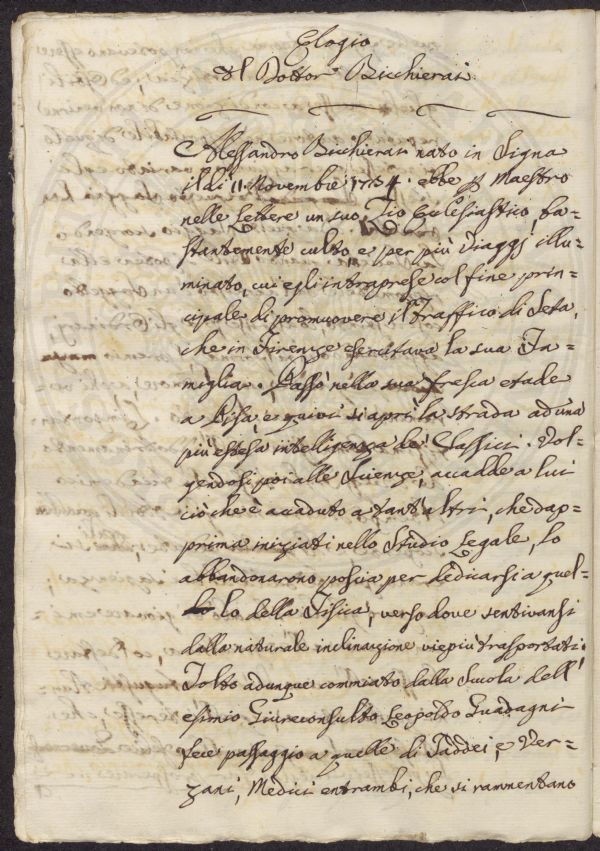 Elogio
Del Dottor Bicchierai.
Alessandro Bicchierai nato in Signa
il dì 11. Novembre 1734. ebbe p Maestro
nelle Lettere un suo Zio Eclesiastico, ba-
stantemente culto, e per più Viaggj illu-
minato, cui egli intraprese col fine prin-
cipale di promuovere il Traffico di Seta,
che in Firenze esercitava la sua Fa-
miglia. Passò nella sua fresca etade
a Pisa, e quivi si aprì la strada ad una
più estesa intelligenza de' Classici. Vol-
gendosi poi alle Scienze, accadde a lui
ciò che è accaduto a tant' altri, che dap-
prima iniziati nello Studio Legale, lo
abbandonarono poscia per dedicarsi a quel-
lo della Fisica, verso dove sentivansi
dalla naturale inclinazione viepiù trasportati.
Tolto adunque commiato dalla Scuola dell'
esimio Giureconsulto Leopoldo Guadagni
fece passaggio a quelle di Taddei, e Ver-
zani, Medici entrambi, che si rammentano